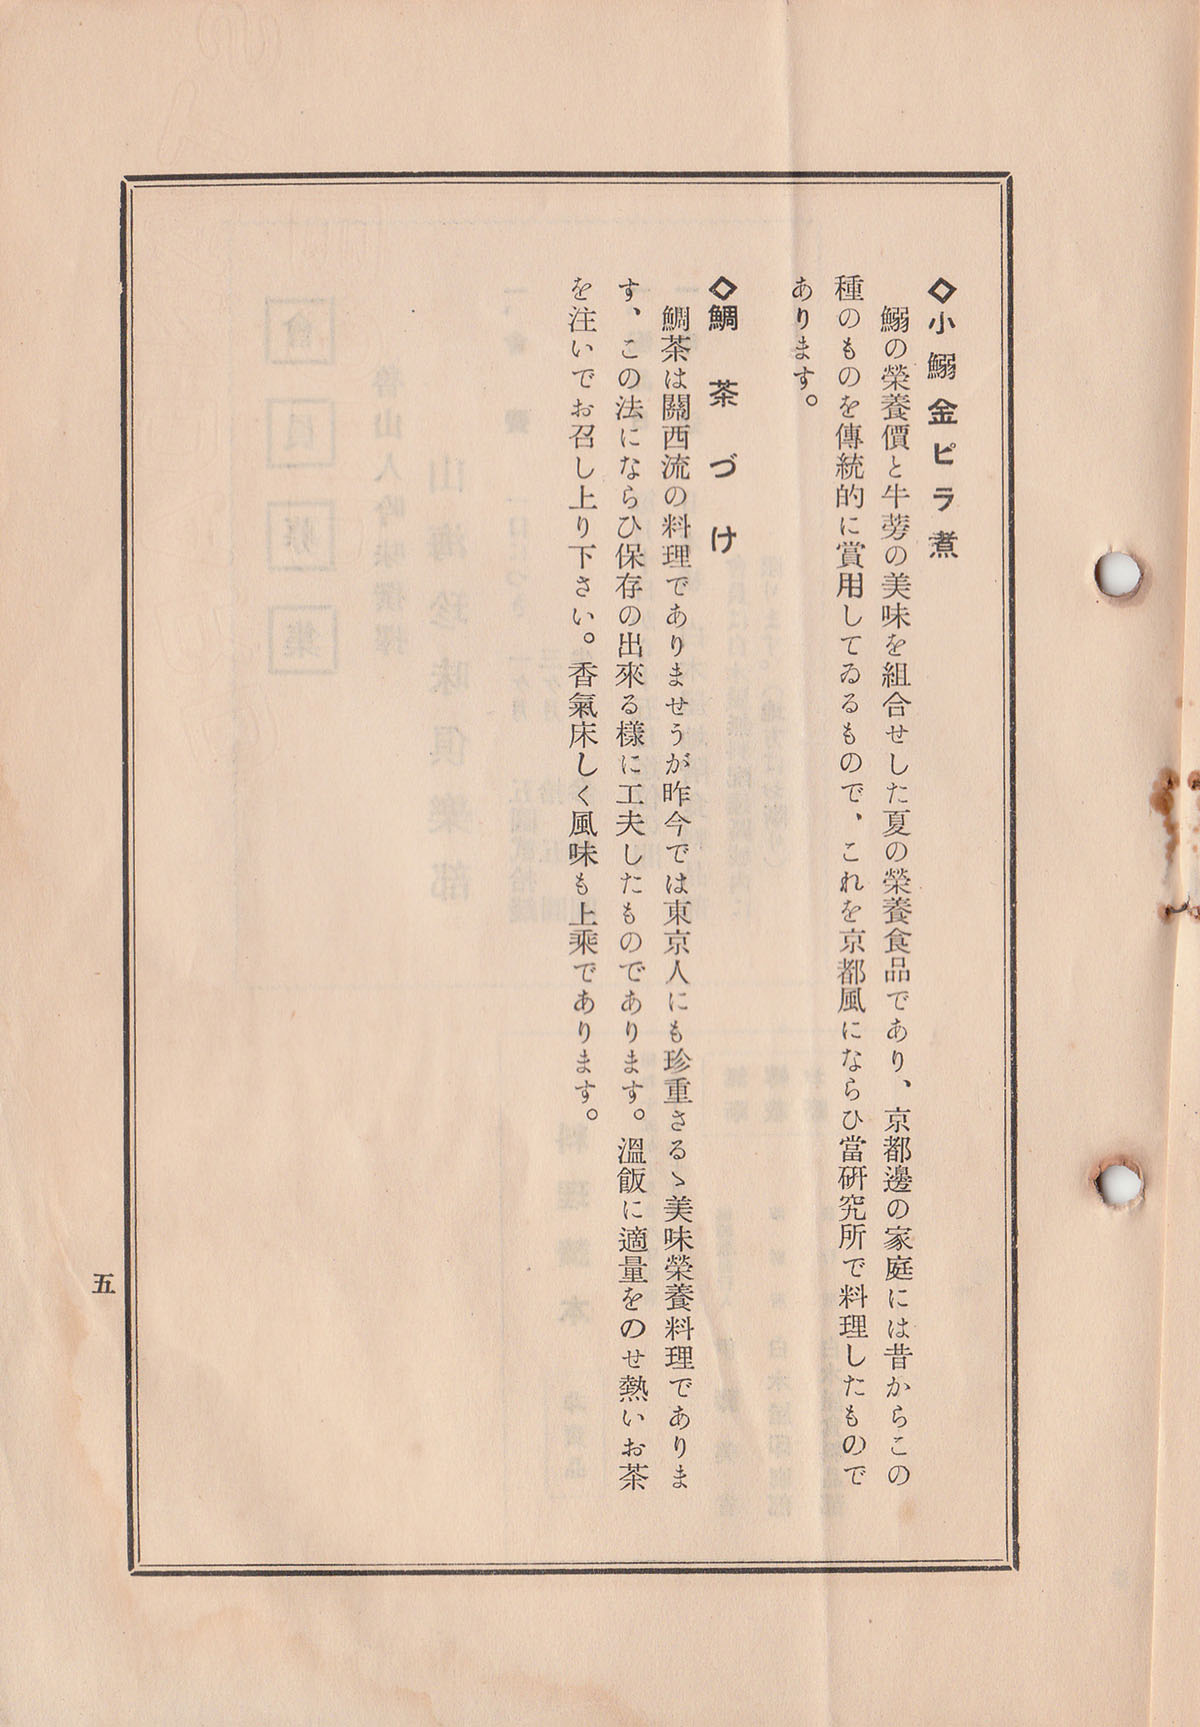 ◇小鰯金ピラ煮
鰯の榮養價と牛蒡の美味を組合せした夏の榮養食品であり、京都邊の家庭には昔からこの
種のものを傳統的に賞用してゐるもので、これを京都風にならひ當硏究所で料理したもので
あります。
◇鯛茶づけ
鯛茶は關西流の料理でありませうが昨今では東京人にも珍重さるゝ美味榮養料理でありま
す、この法にならひ保存の出來る樣に工夫したものであります。溫飯に適量をのせ熱いお茶
を注いでお召し上り下さい。香氣床しく風味も上乘であります。
五